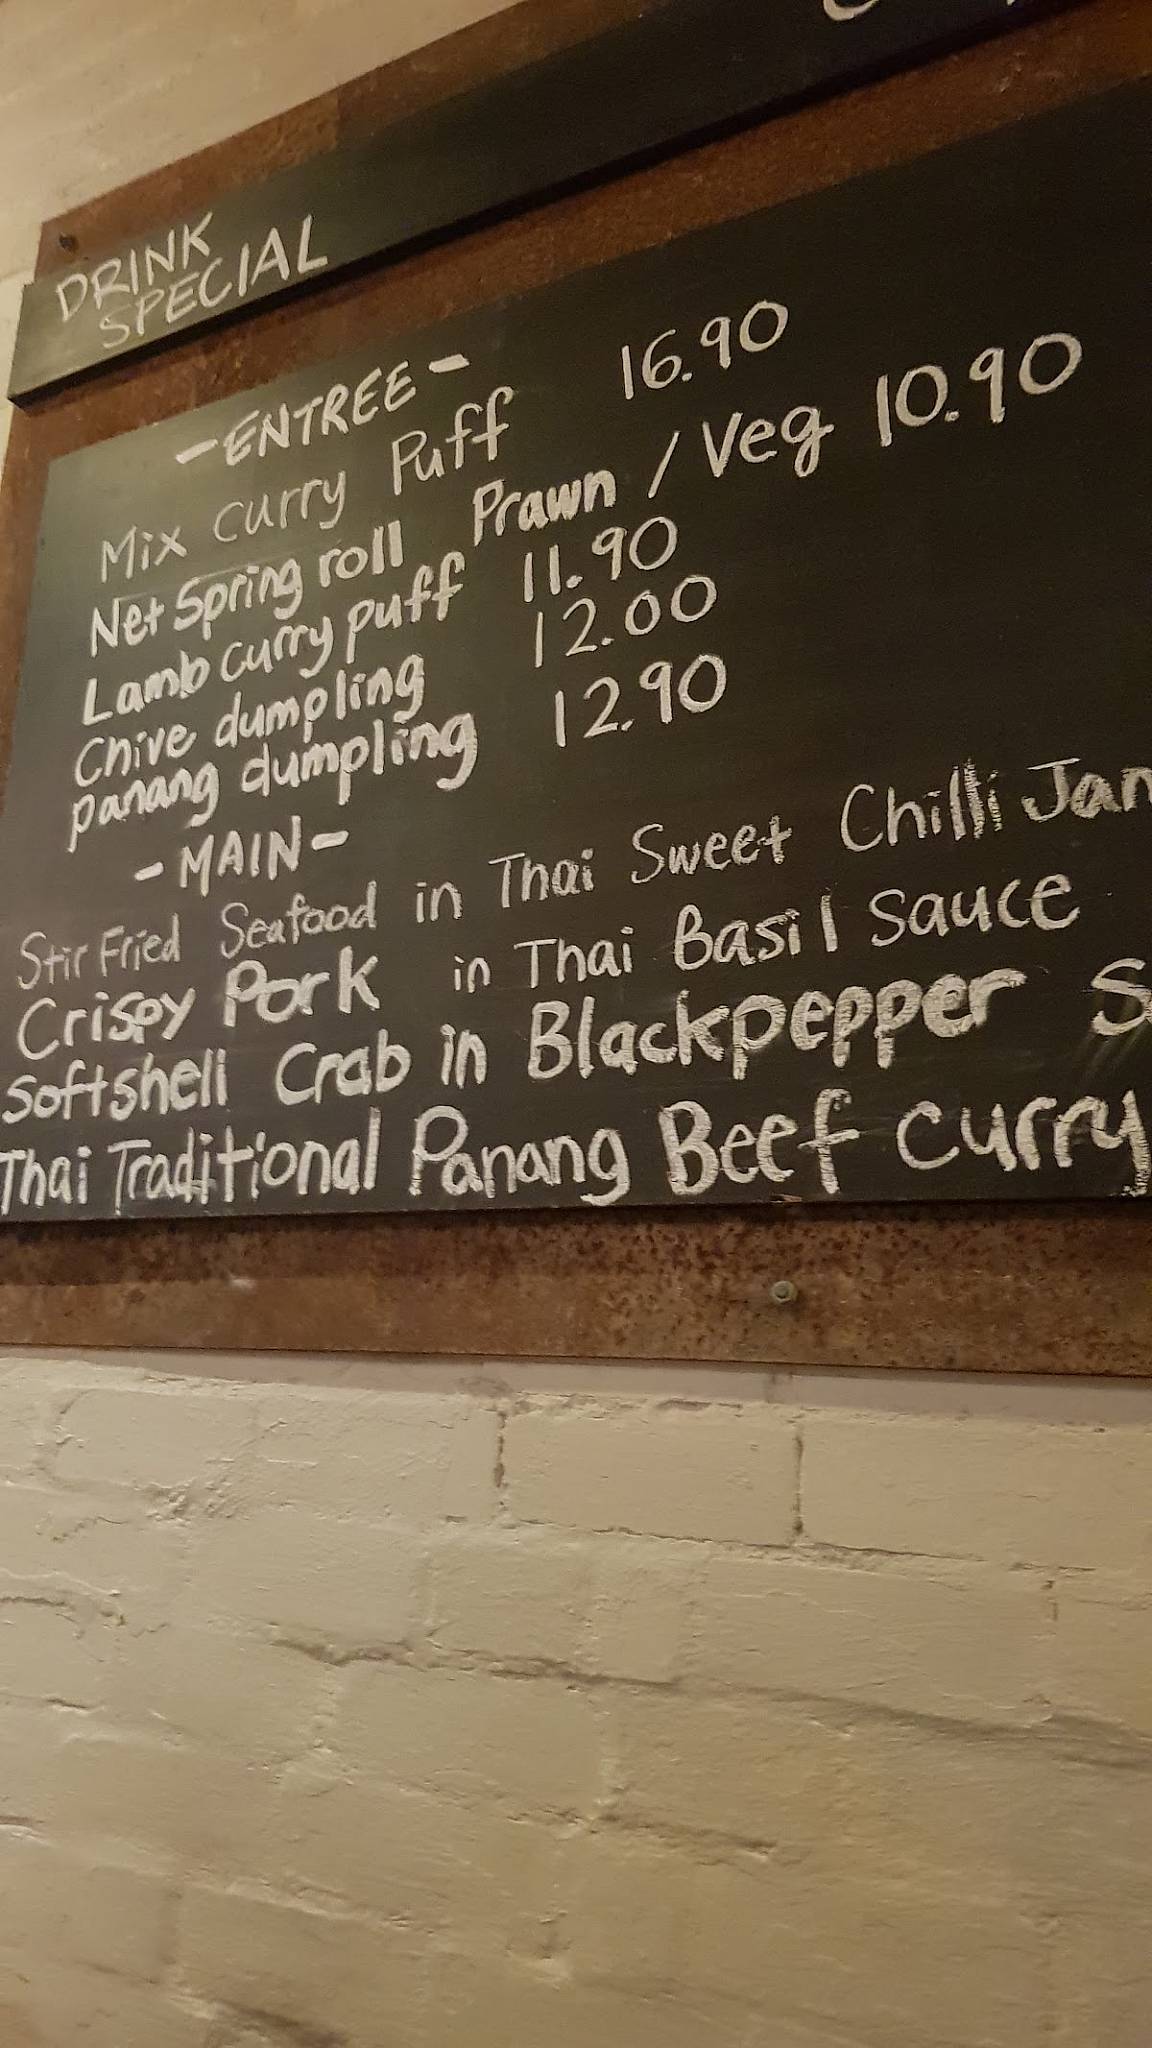 DRINK
SPECIAL
-ENTREE-
Mix curry Puff 16.90
Net Spring roll Prawn / Veg 10.90
Lamb curry puff 11.90
Chive dumpling 12.00
Panang dumpling 12.90
-MAIN-
Stir Fried Seafood in Thai Sweet Chilli Jam
Crispy Pork in Thai Basil Sauce
Softshell Crab in Blackpepper S
Thai Traditional Panang Beef Curry